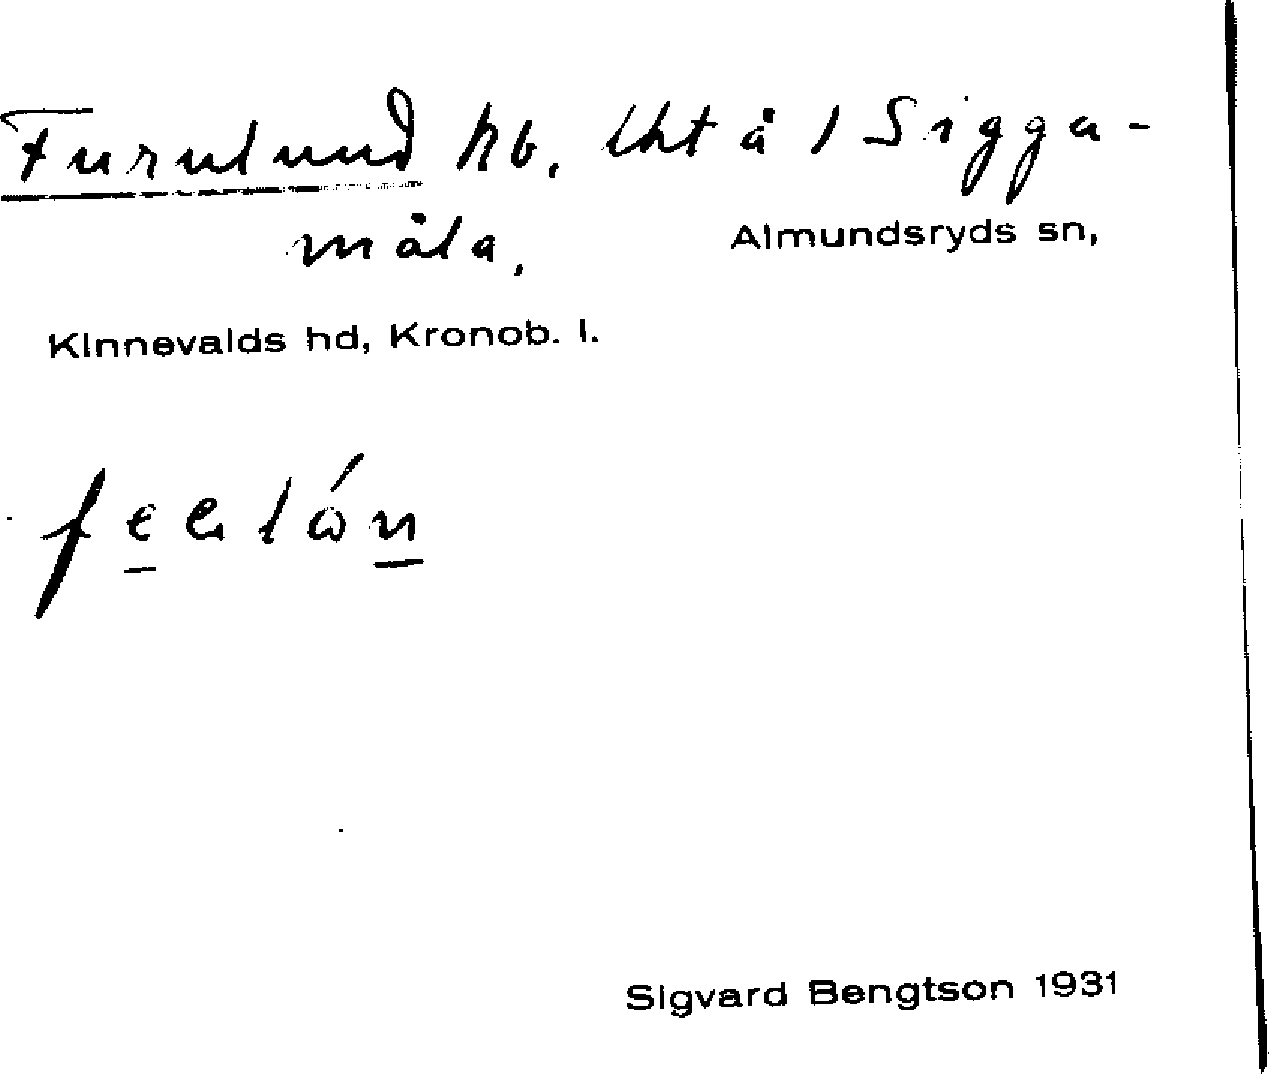 Furulund hb. lht å 1 Sigga-
måla,
Almundsryds sn,
Kinnevalds hd, Kronob. l.
Sigvard Bengtson 1931